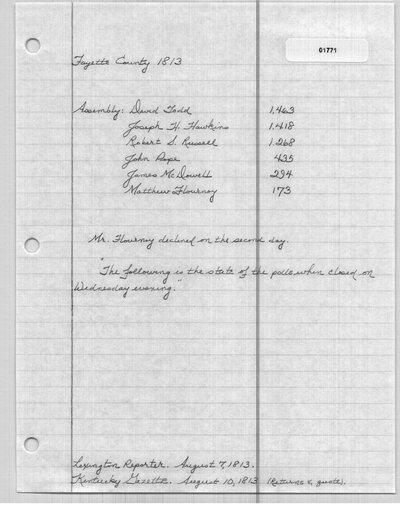 01771
Fayette County 1813
Assembly: David Todd 1,463
Joseph H. Hawkins 1,418
Robert S. Russell 1,268
John Pope 435
James McDowell 294
Matthew Flournoy 173
Mr. Flourney declined on the second day.
"The following is the state of the polls when closed on
Wednesday evening."
Lexington Reporter. August 7, 1813.
Kentucky Gazette. August 10, 1813 (Returns & quote).